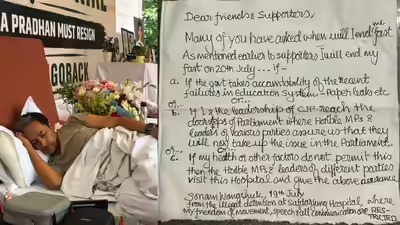 A PRADHAN MUST RESIGN
GOBACK
Dear friends & Supporters,
Many of you have asked when will I end my fast
As mentioned earlier to supporters I will end my
fast on 20th July --- if -
a. If the govt takes accountability of the recent
failures in Education System - Paper leaks etc
or...
or...
b. If I & the leaderships of CJP reach the
doorsteps of Parliament where Honble MPs &
leaders of various parties assure us that they
will now take up the issue in the Parliament.
or...
c. If my health or other factors do not permit this
then the Honble MPs & leaders of different parties
visit this Hospital and give the above assurance
Sonam Wangchuk, 19th July
from the illegal detention at Safdarjung Hospital, where
my freedom of movement, speech & all communication are RES-
TRICTED